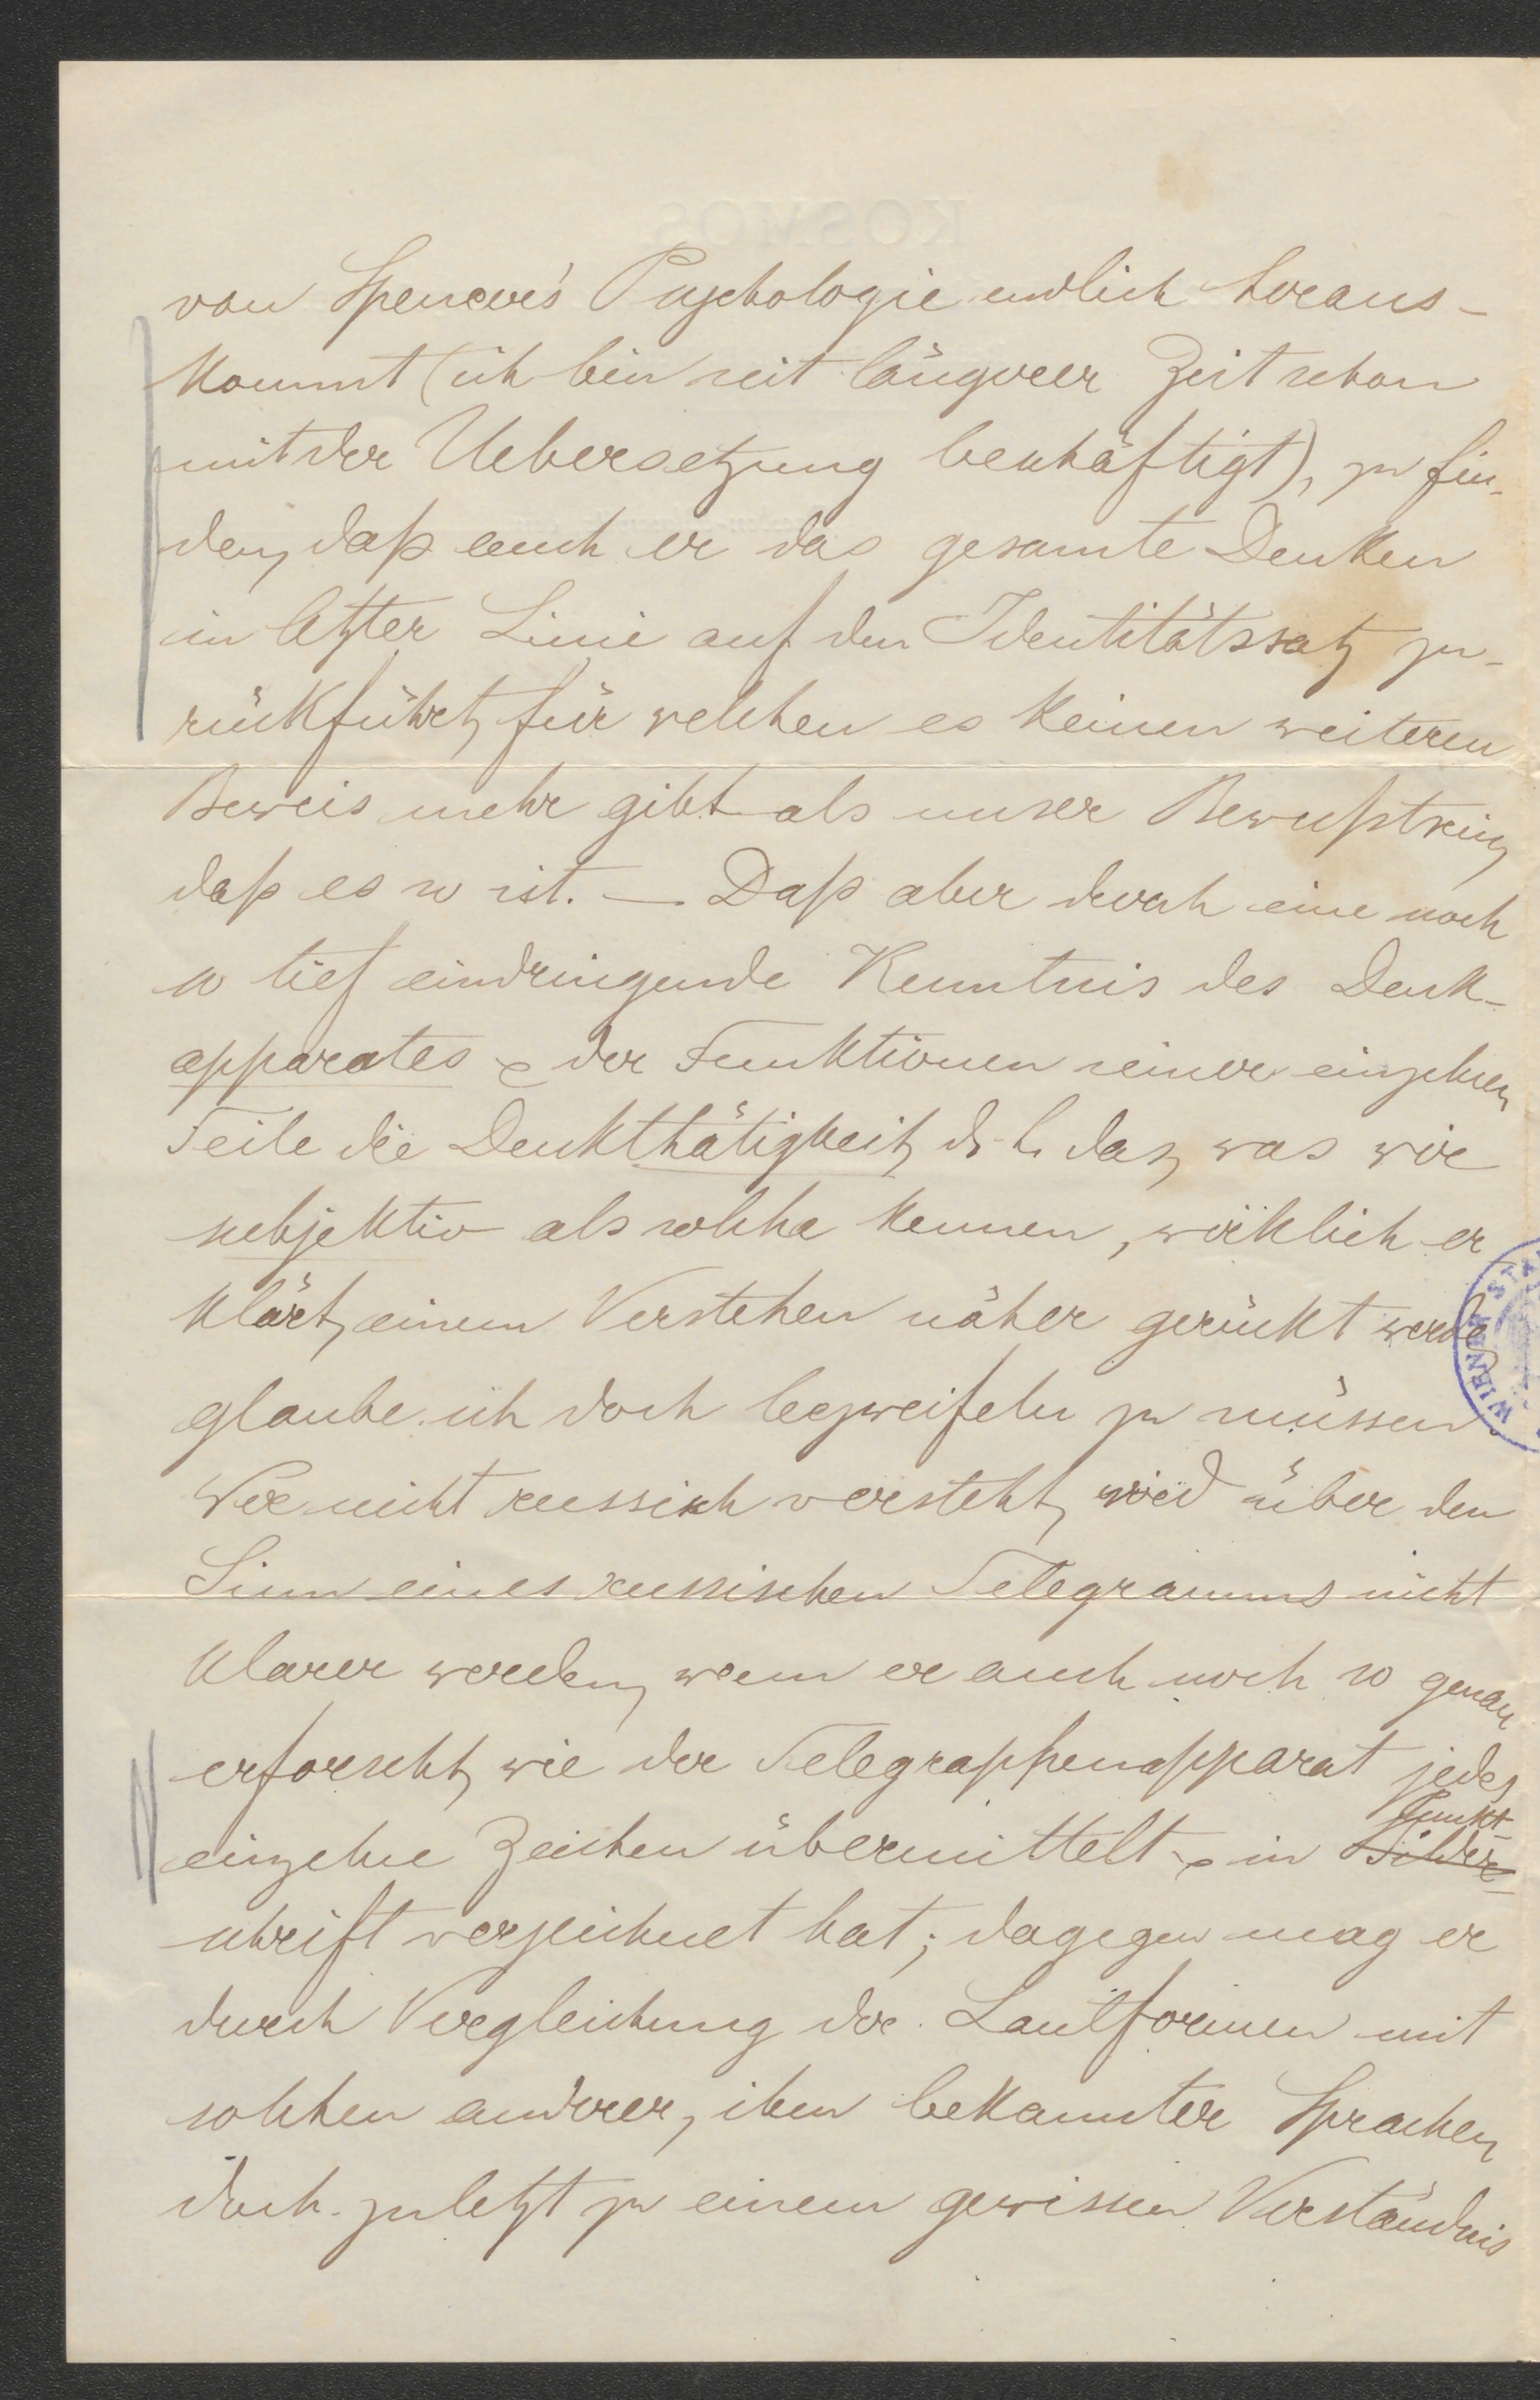 KOSMOS
von Spencer's Psychologie endlich heraus-
kommt (ich bin seit längerer Zeit schon
mit der Uebersetzung beschäftigt), zu fin-
den, daß auch er das gesamte Denken
in letzter Linie auf den Identitätssatz zu-
rückführt, für welchen es keinen weiteren
Beweis mehr gibt als unser Bewußtsein,
daß es so ist. — Daß aber durch eine noch
so tief eindringende Kenntnis des Denk-
apparates & der Funktionen seiner einzelnen
Teile die Denkthätigkeit, d. h. das, was wir
subjektiv als solche kennen, wirklich er-
klärt, einem Verstehen näher gerückt werde,
glaube ich doch bezweifeln zu müssen.
Wer nicht russisch versteht, wird über den
Sinn eines russischen Telegramms nicht
klarer werden, wenn er auch noch so genau
erforscht, wie der Telegraphenapparat jedes
Punkt-
einzelne Zeichen übermittelt & in
schrift verzeichnet hat; dagegen mag er
durch Vergleichung der Lautformen mit
solchen anderer, ihm bekannter Sprachen
doch zuletzt zu einem gewissen Verständnis
WIENER ST